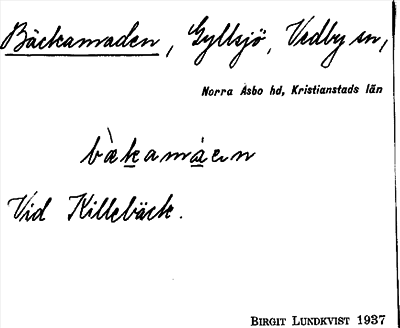 Bäckamaden, Gyllsjö, Vedby sn,
Norra Åsbo hd, Kristianstads län
Vid Killebäck.
BIRGIT LUNDKVIST 1937